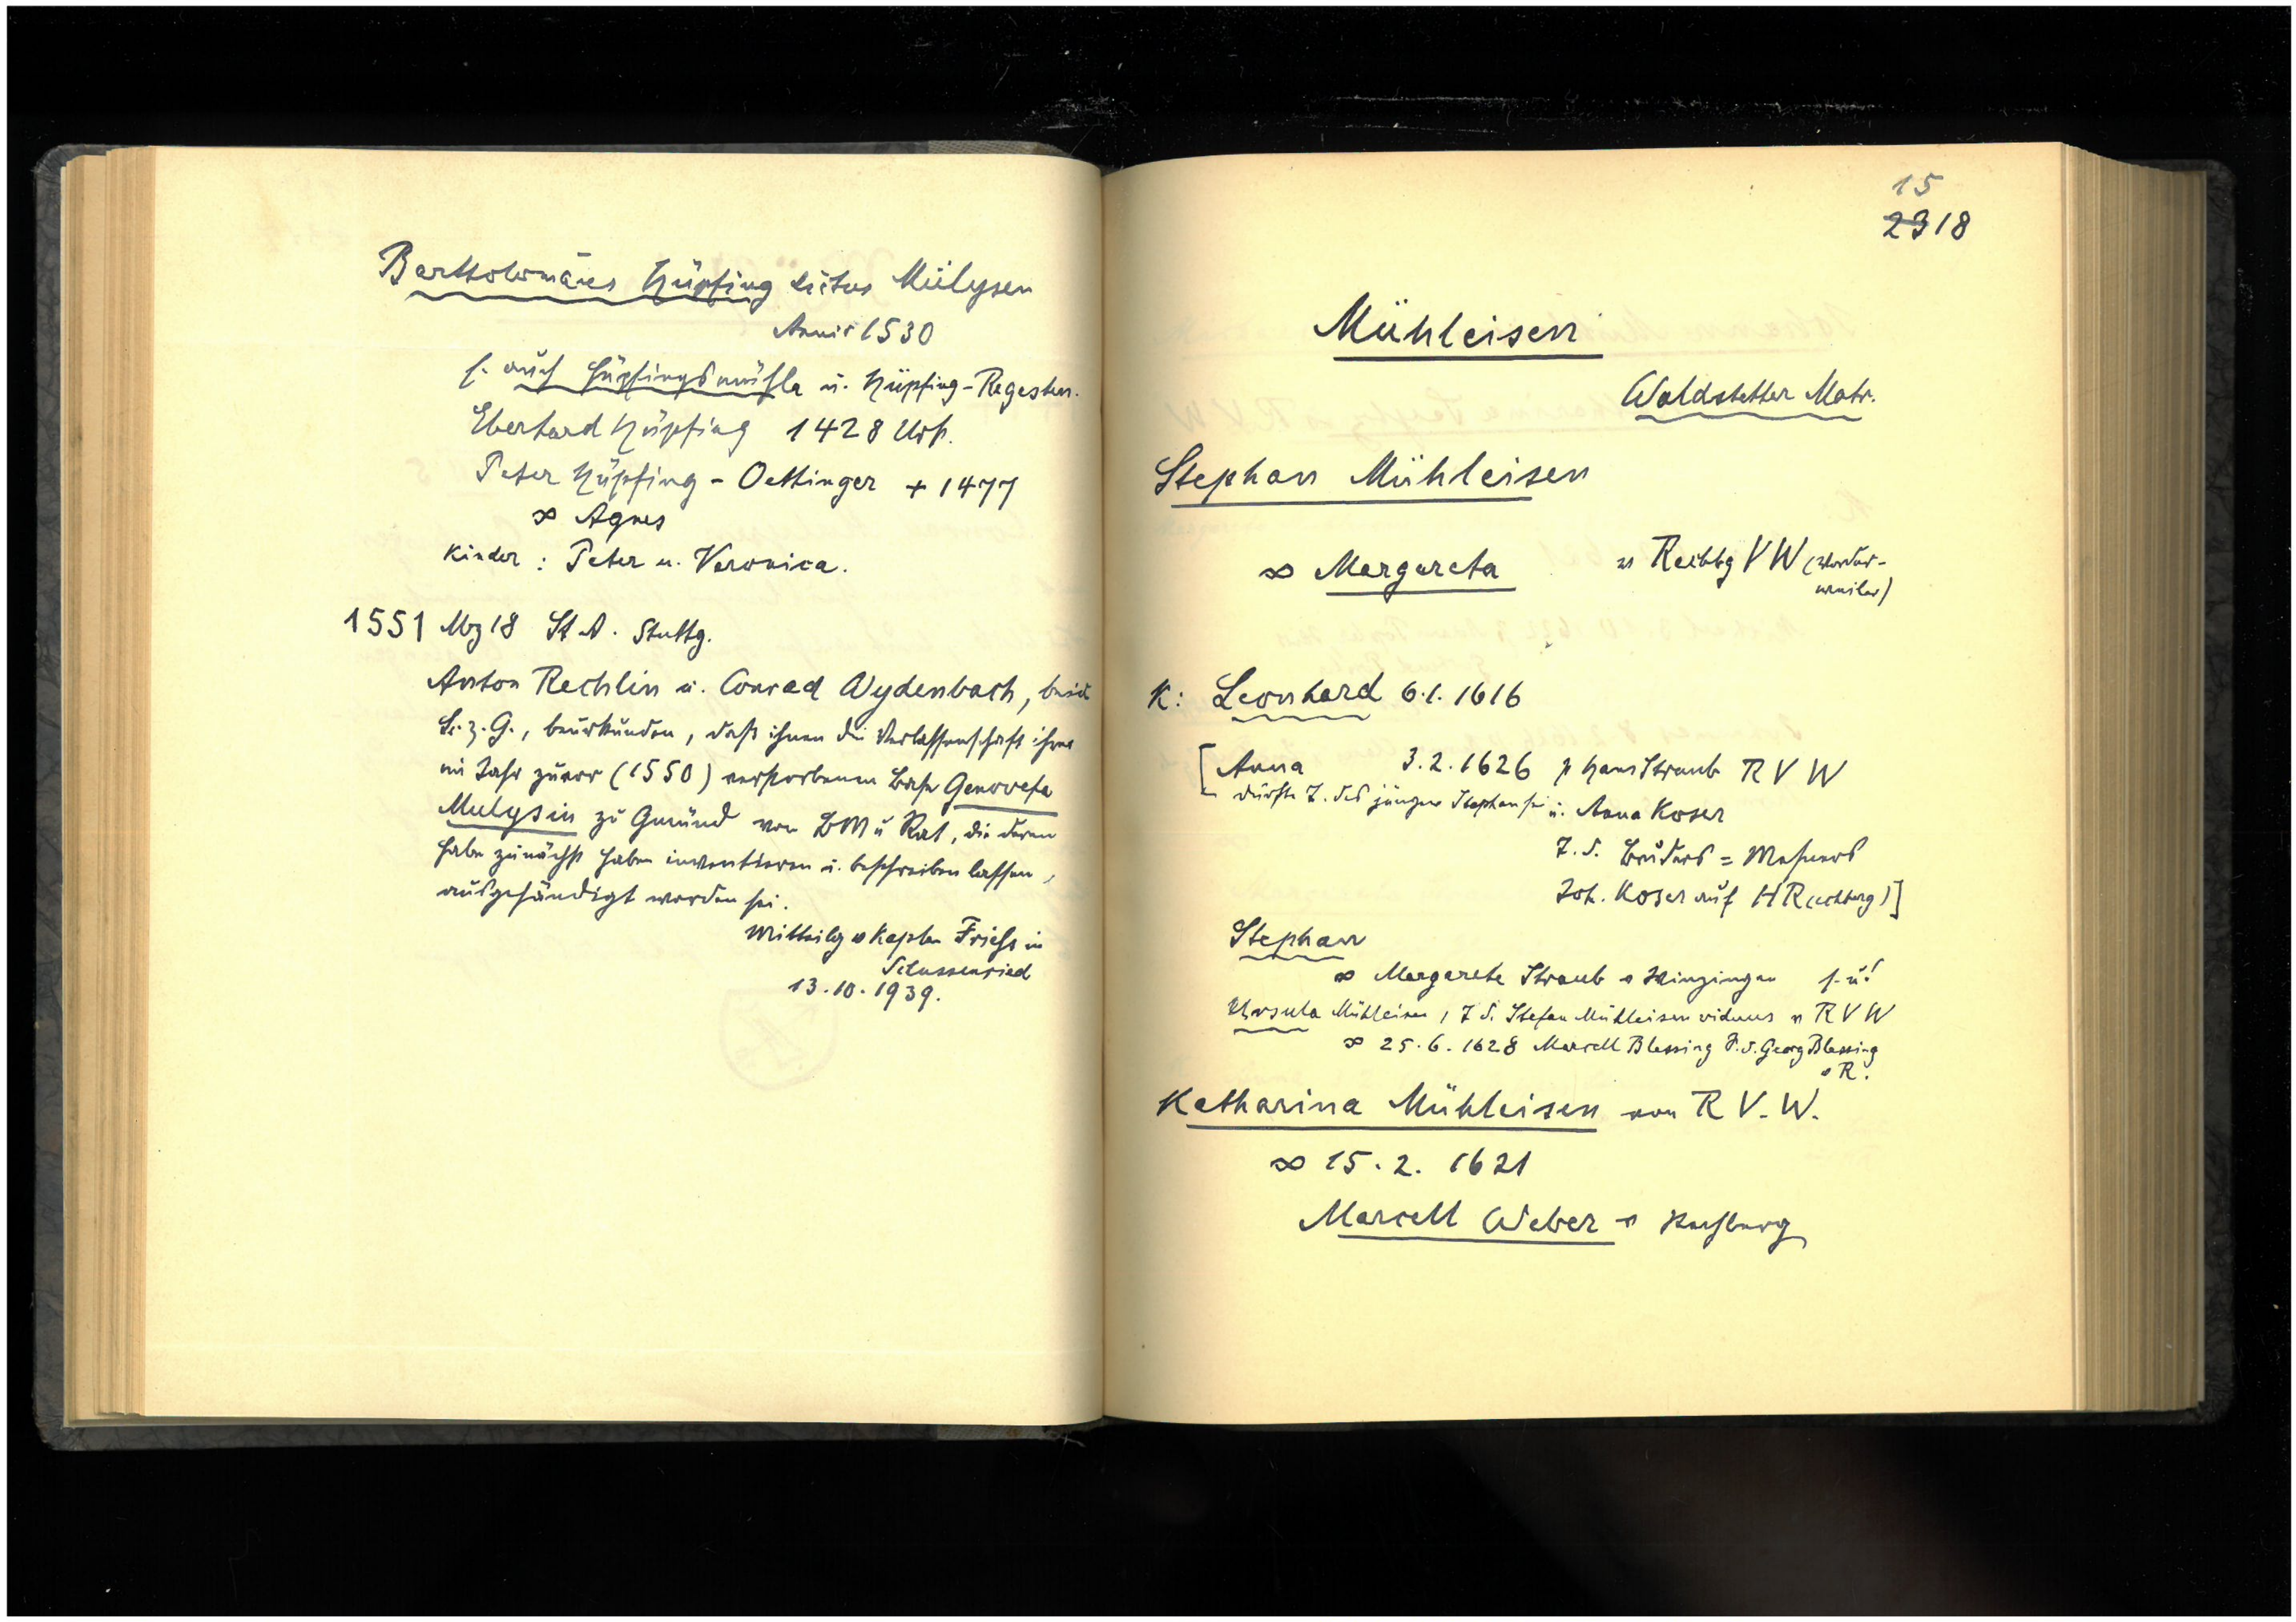 Bartholomäus Hüpfing dictus Mülysen
Anniv 1530
s. auch Hüpfingsmühle u. Hüpfing-Regesten.
Eberhard Hüpfing 1428 Urk.
Peter Hüpfing - Oettinger + 1477
∞ Agnes
Kinder : Peter u. Veronica.
1551 Mz 18 St A. Stuttg.
Anton Rechlin u. Conrad Wydenbach, beide
B. z. G., beurkunden, daß ihnen die Verlassenschaft ihrer
im Jahr zuvor (1550) verstorbenen Base Genovefa
Mulysin zu Gmünd von BM u Rat, die deren
Habe zunächst haben inventieren u. beschreiben lassen,
ausgehändigt worden sei.
Mitteilg v Kaplan Frieß in
Schussenried
13.10.1939.
15
23 18
Mühleisen
Waldstetter Matr.
Stephan Mühleisen
∞ Margareta v Rechbg V W (Vorder-
weiler)
K: Leonhard 6.1.1616
[Anna 3.2.1626 p Hans Straub R V W
dürfte T. des jüngern Stephan sei u. Anna Koser
T. d. Bruders = Mesners
Joh. Koser auf H R(echberg)]
Stephan
∞ Margarete Straub v Winzingen s. u!
Ursula Mühleisen, T d. Stefan Mühleisen viduus v R V W
∞ 25.6.1628 Marcell Blessing S. d. Georg Blessing
v R.
Katharina Mühleisen von R V. W.
∞ 15.2. 1621
Marcell Weber v Rechberg